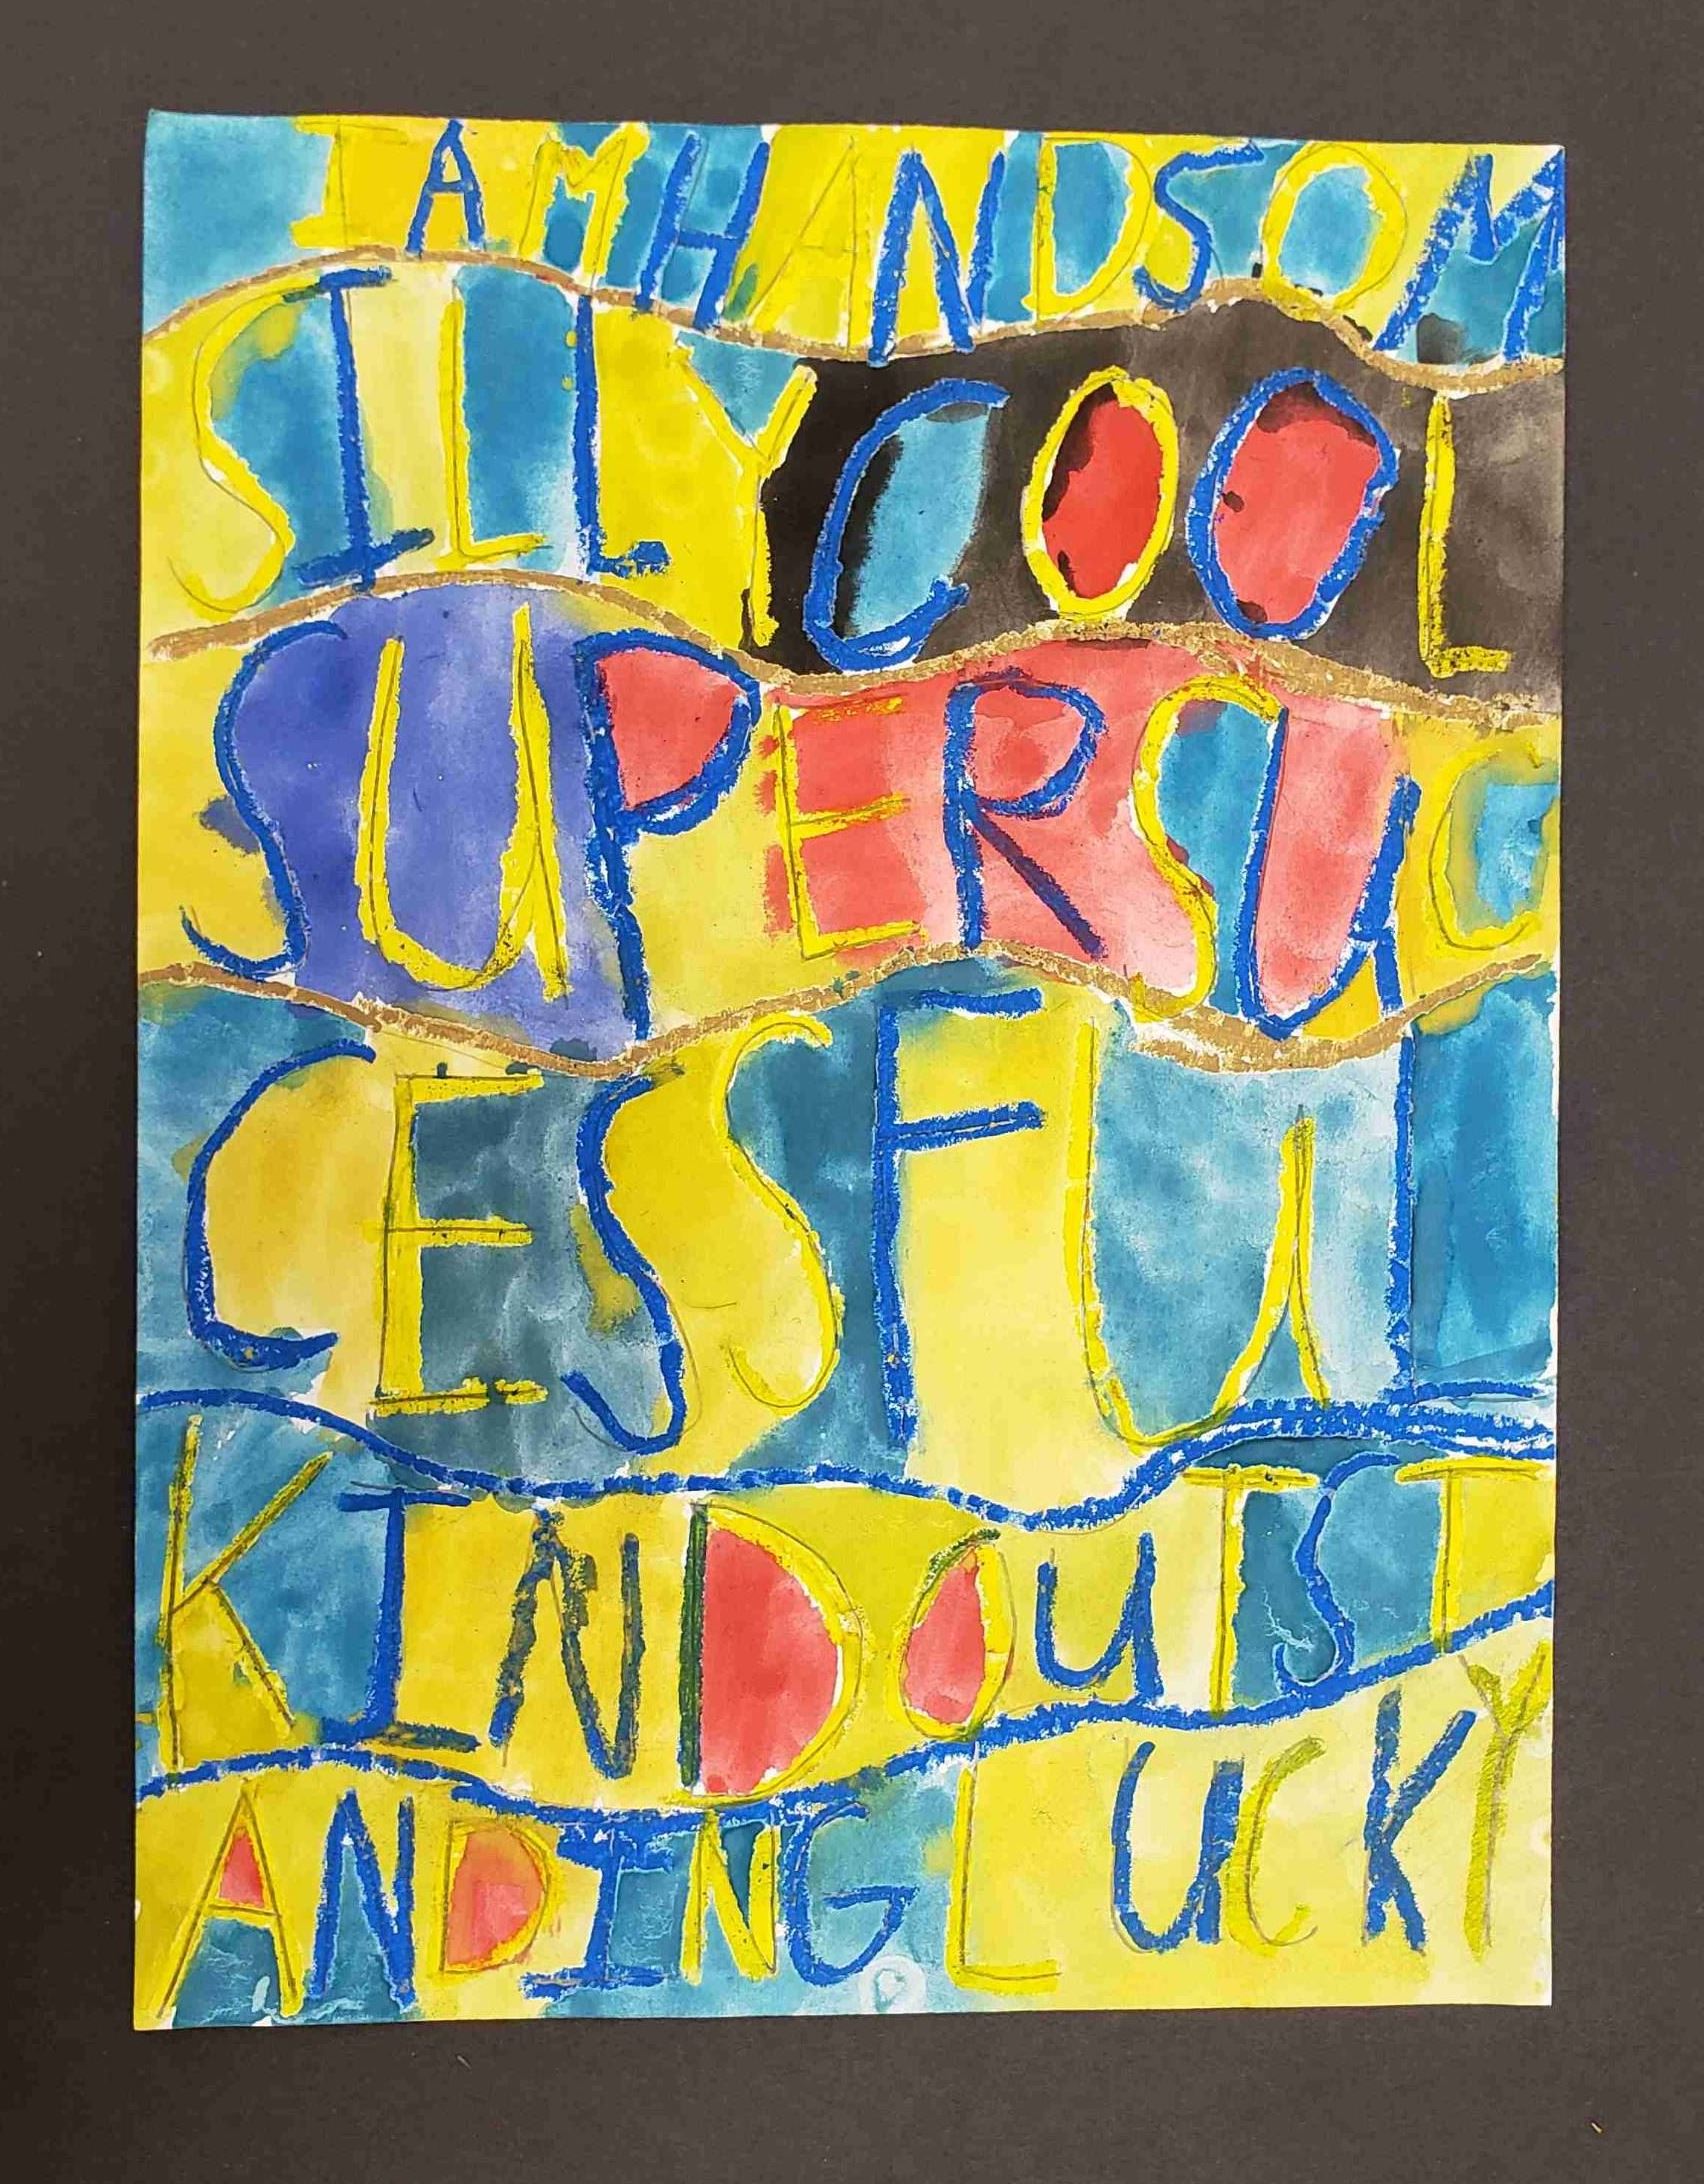 I AM HANDSOM
SILLY COOL
SUPER SUC
CESSFUL
KIND OUTST
ANDING LUCKY